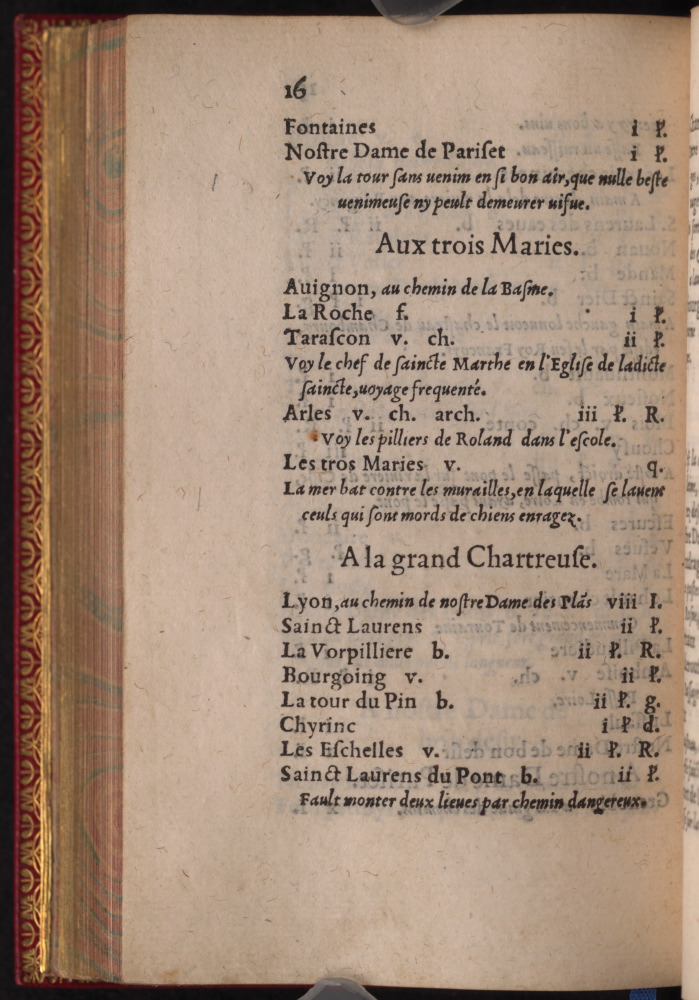 16
Fontaines i l.
Noſtre Dame de Pariſet i l.
Voy la tour ſans uenim en ſi bon air, que nulle beſte
uenimeuſe ny peult demeurer uifue.
Aux trois Maries.
Auignon, au chemin de la Baſme.
La Roche f. i l.
Taraſcon v. ch. ii l.
Voy le chef de ſaincte Marthe en l'Egliſe de ladicte
ſaincte, uoyage frequenté.
Arles v. ch. arch. iii l. R.
Voy les pilliers de Roland dans l'eſcole.
Les tros Maries v. q.
La mer bat contre les murailles, en laquelle ſe lauent
ceuls qui ſont mords de chiens enragez.
A la grand Chartreuſe.
Lyon, au chemin de noſtre Dame des Plãs viii l.
Sainct Laurens ii l.
La Vorpilliere b. ii l. R.
Bourgoing v. ii l.
La tour du Pin b. ii l. g.
Chyrinc i l d.
Les Eſchelles v. ii l. R.
Sainct Laurens du Pont b. ii l.
Fault monter deux lieues par chemin dangereux.